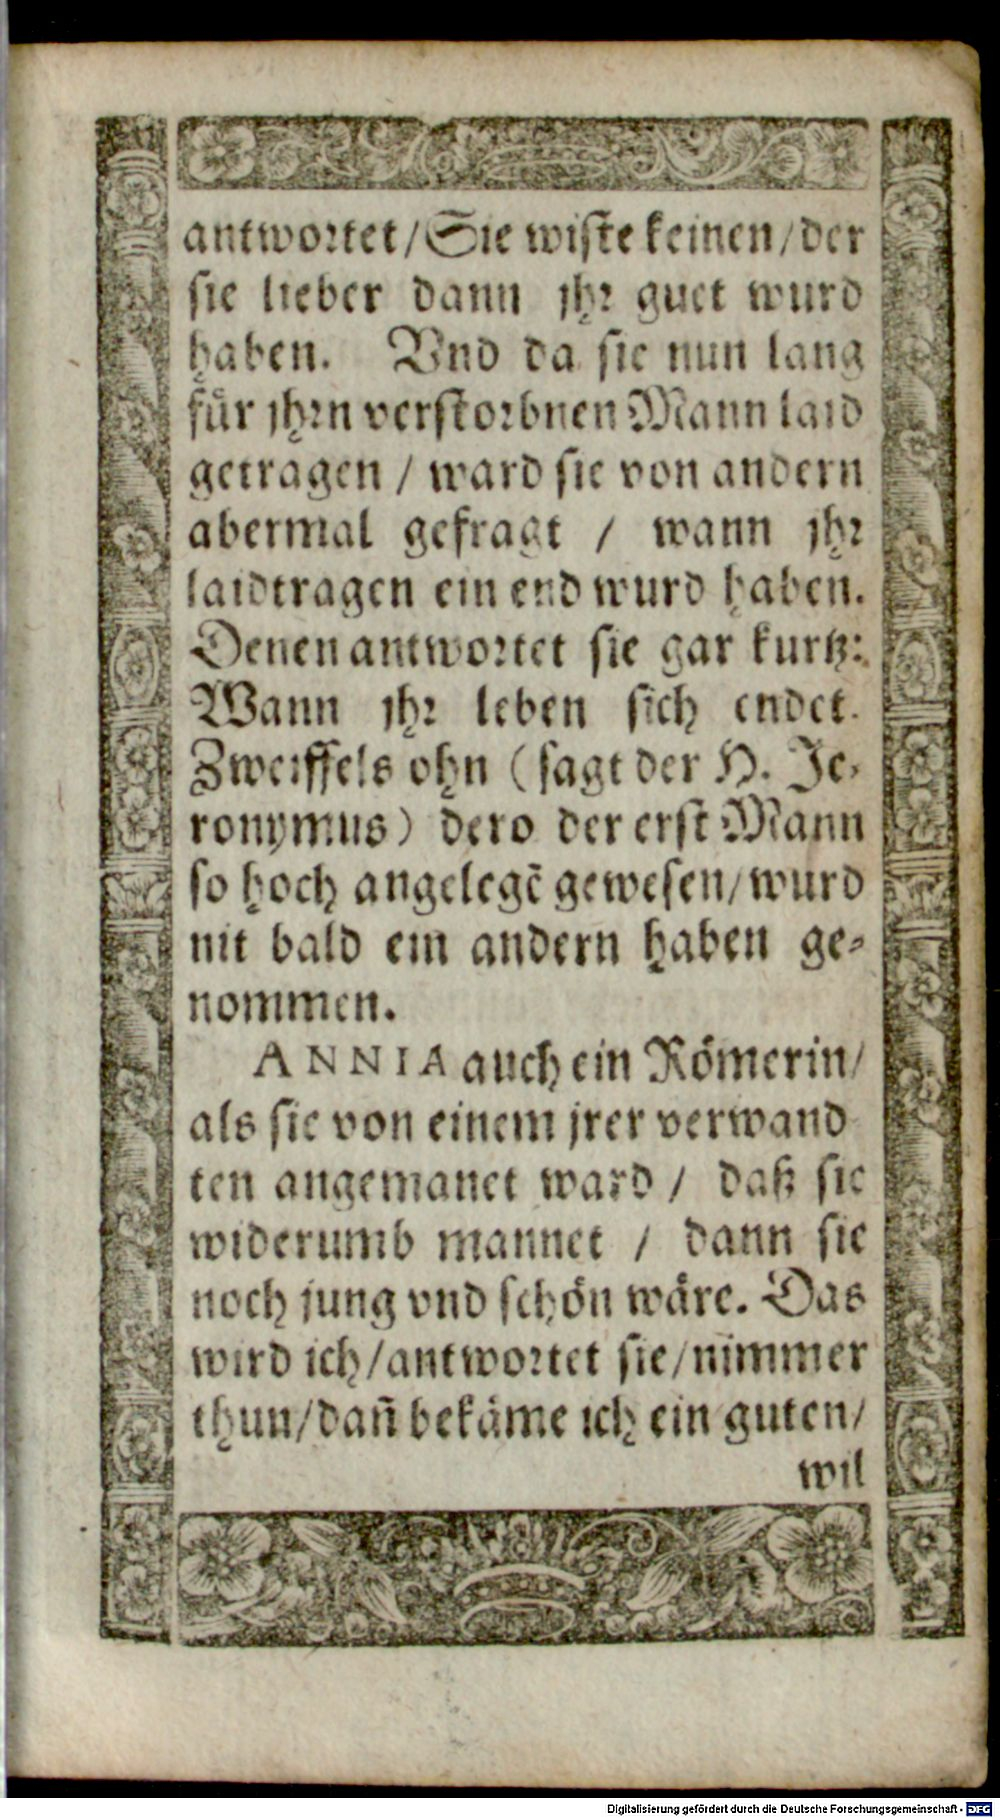 antwortet/Sie wiste keinen/der
sie lieber dann jhr guet wurd
haben. Vnd da sie nun lang
für jhrn verstorbnen Mann laid
getragen / ward sie von andern
abermal gefragt / wann jhr
laidtragen ein end wurd haben.
Denen antwortet sie gar kurtz:
Wann jhr leben sich endet.
Zweiffels ohn (sagt der H. Je-
ronymus) dero der erst Mann
so hoch angelegẽ gewesen/wurd
nit bald ein andern haben ge-
nommen.
ANNIA auch ein Römerin/
als sie von einem jrer verwand
ten angemanet ward / daß sie
widerumb mannet / dann sie
noch jung vnd schön wäre. Das
wird ich/antwortet sie/nimmer
thun/dañ bekäme ich ein guten/
wil
Digitalisierung gefördert durch die Deutsche Forschungsgemeinschaft - DFG